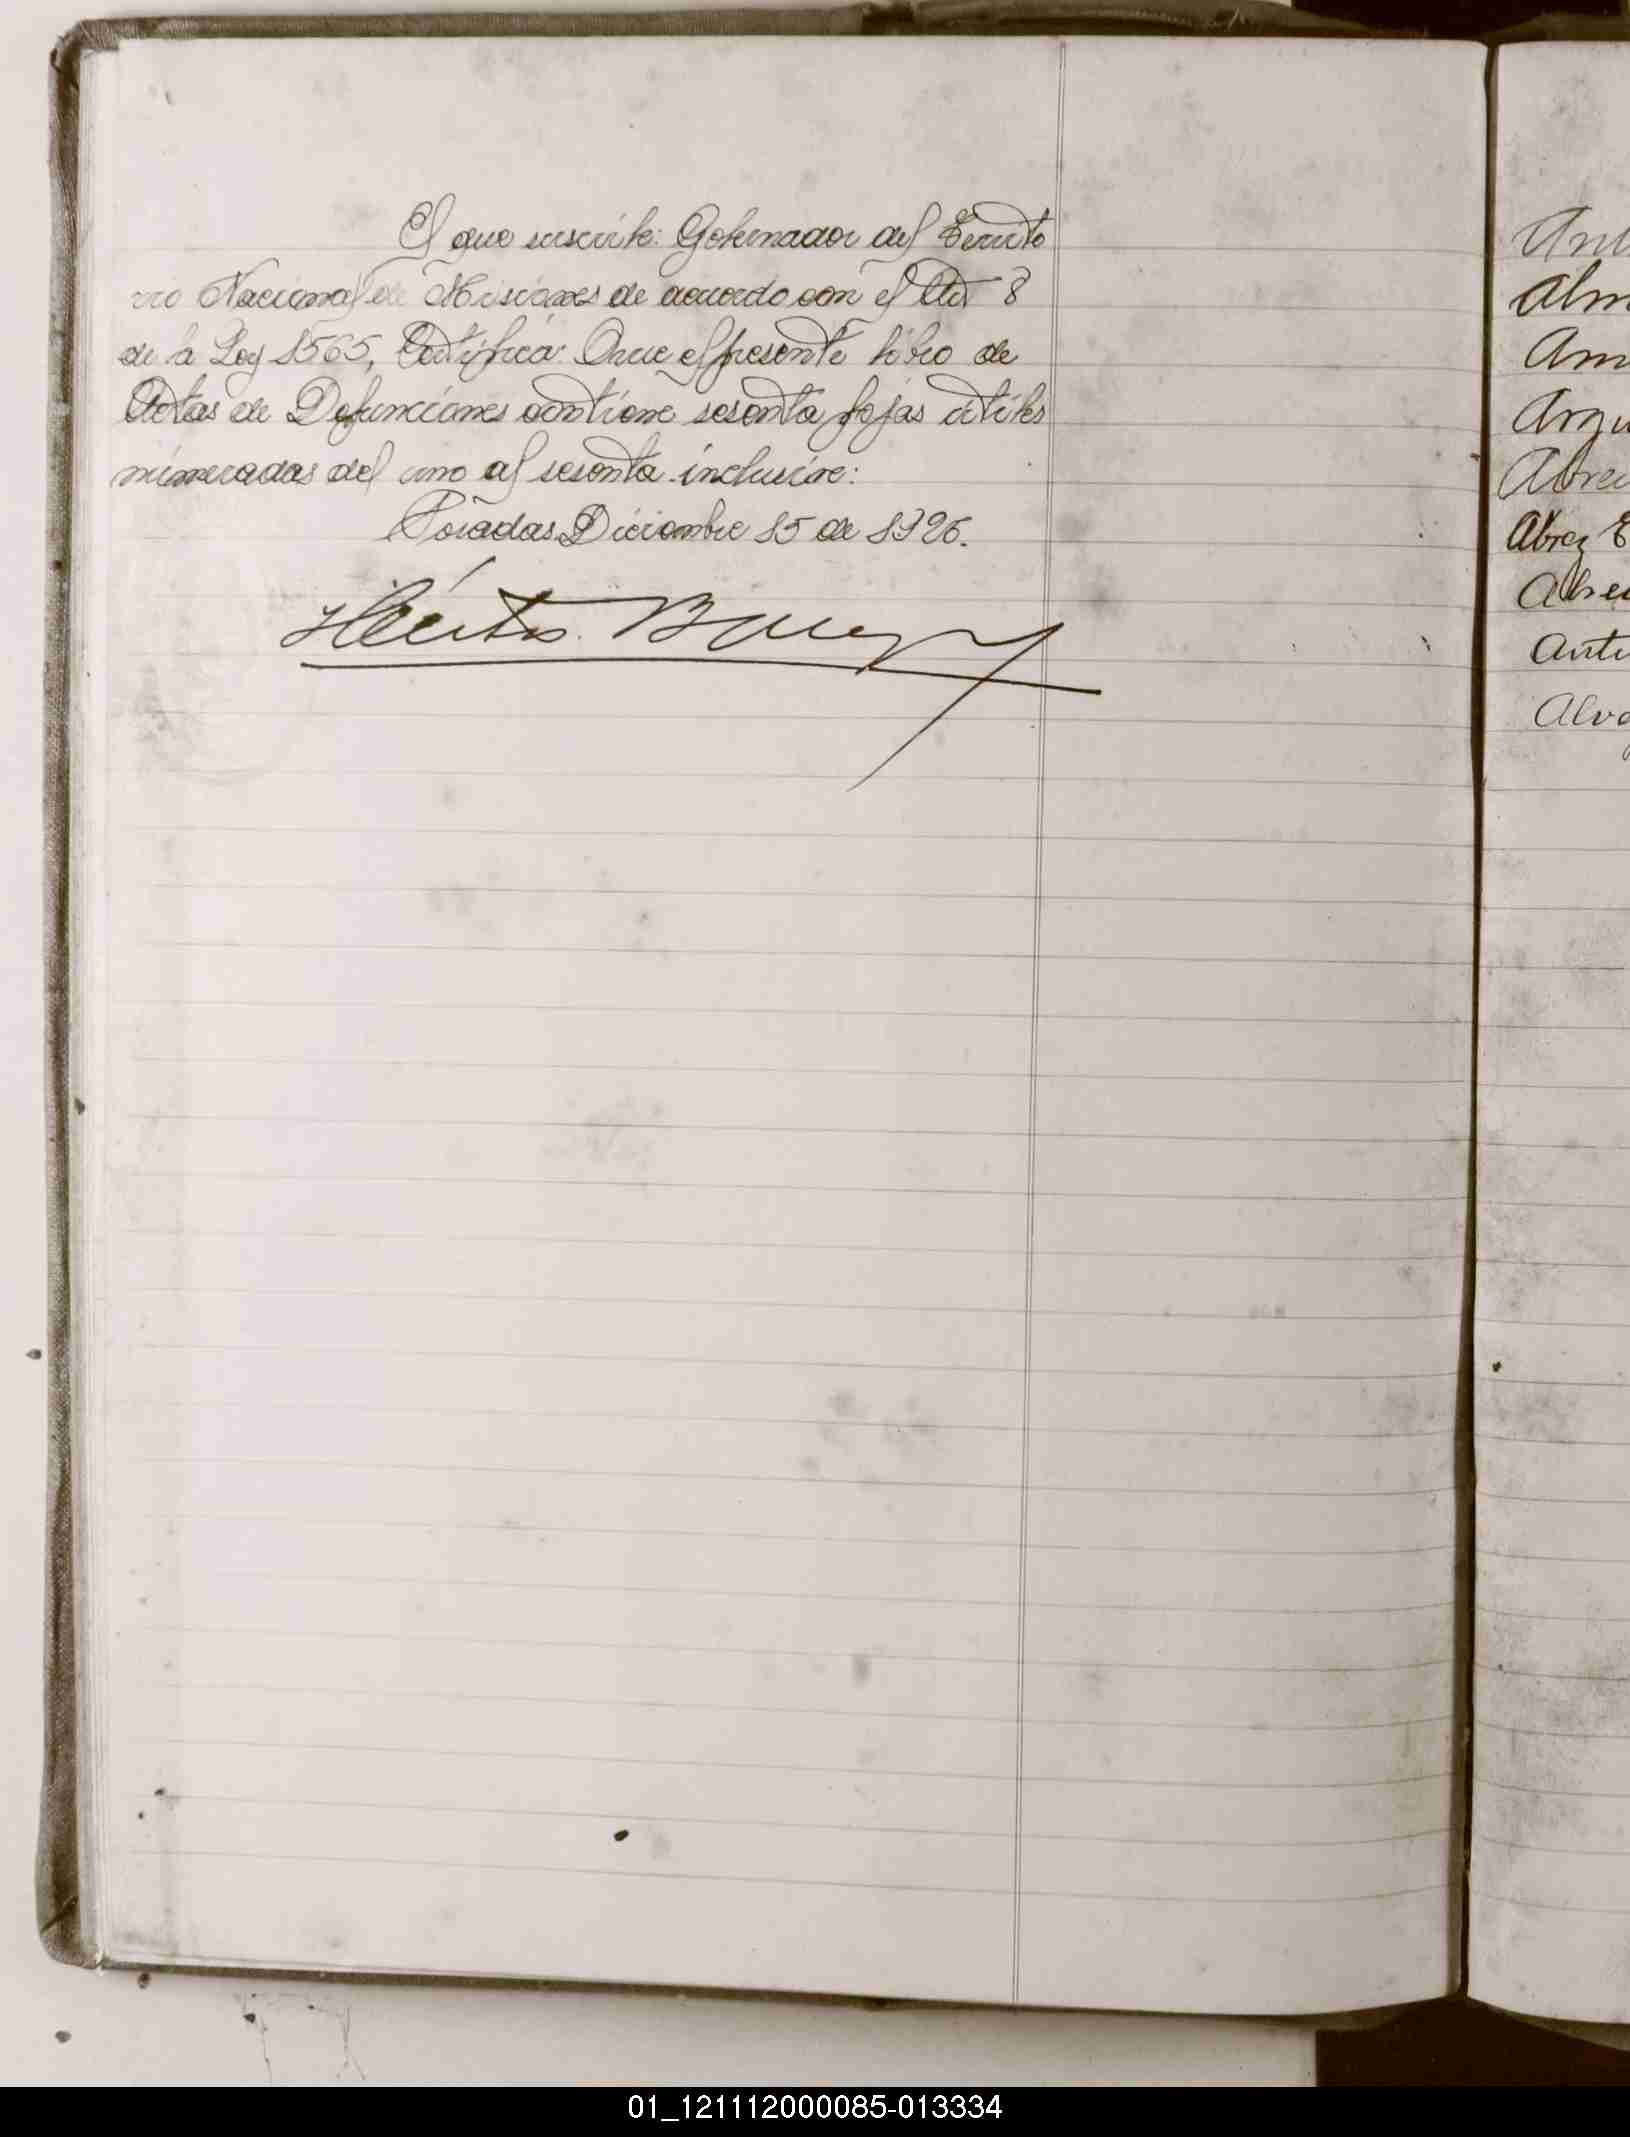 El que suscribe: Gobernador del Territo
rio Nacional de Misiones de acuerdo con el Art 8
de la Ley 1565, Certifica: Que el presente libro de
Actas de Defunciones contiene sesenta fojas utiles
numeradas del uno al sesenta inclusive:
Posadas Diciembre 15 de 1926.
Héctor Barreyro
Ant
Alm
Am
Argu
Abreu
Abrez E
Abreu
Antu
Alva
01_121112000085-013334